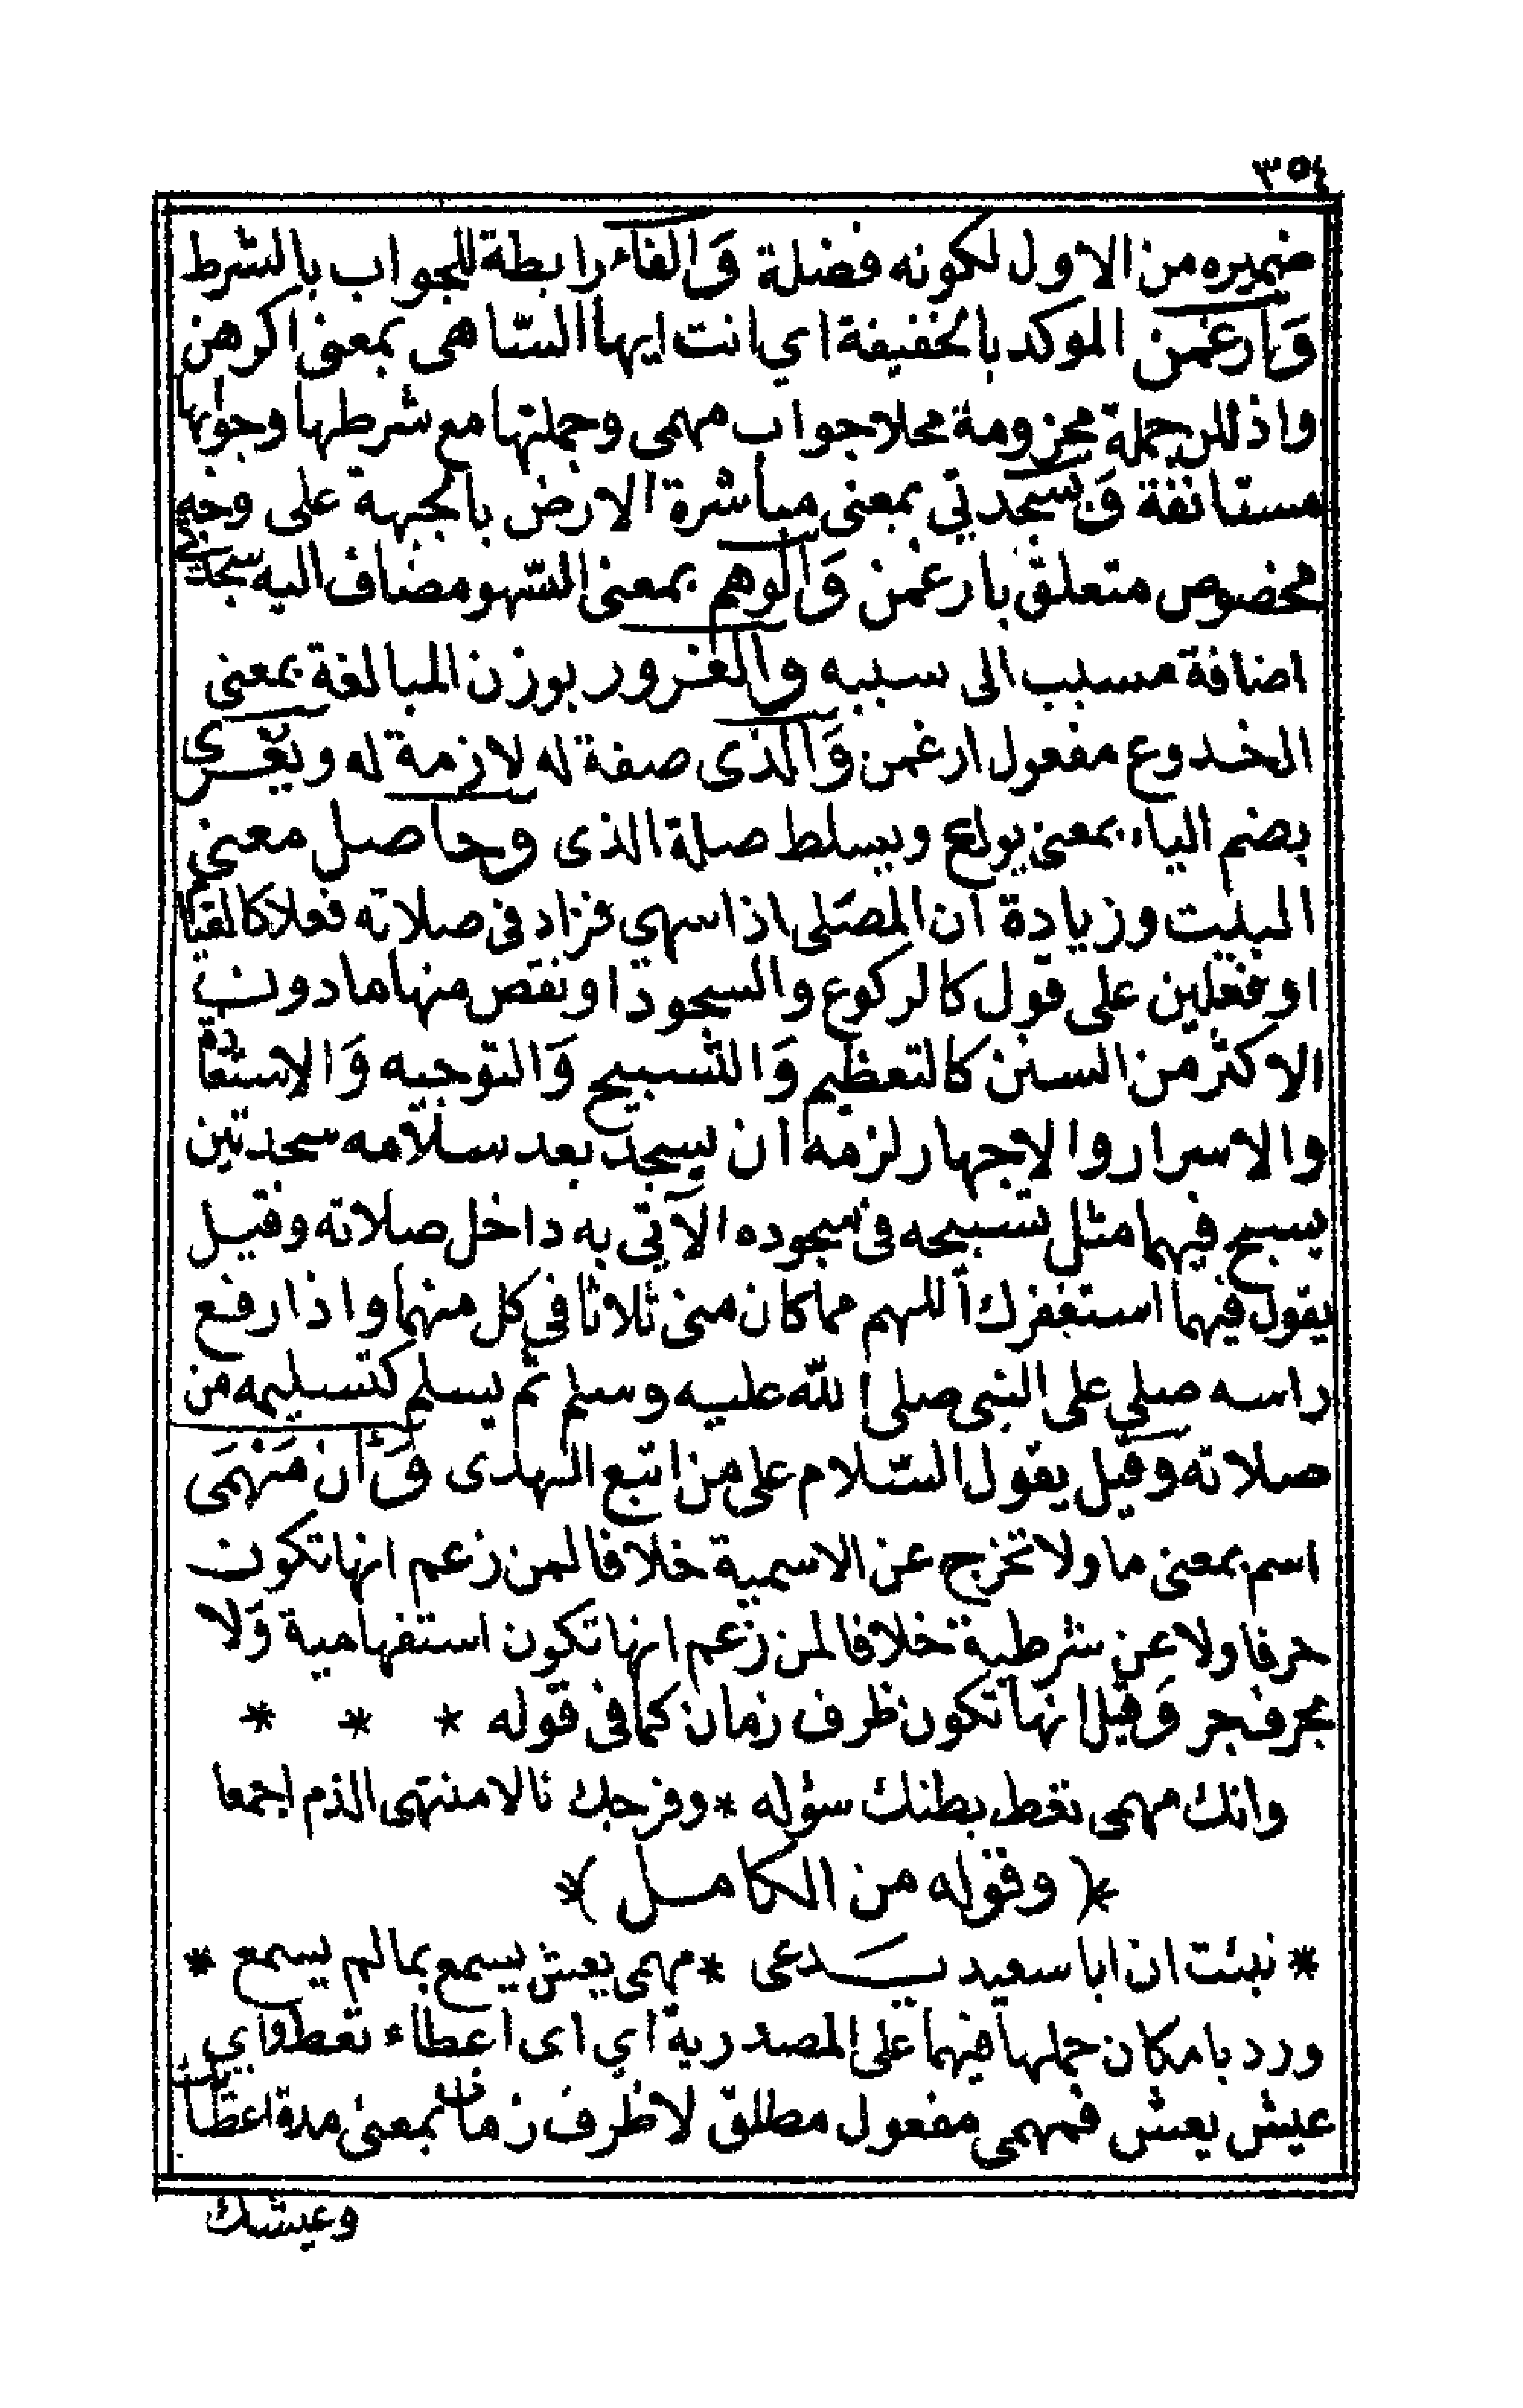 ٣٥٤
ضميره من الاول لكونه فضلة وَالفاء رابطة للجواب بالشرط
وَارغمن الموكد بالخفيفة اي انت ايها السّاهى بمعنى اكرهن
واذللن جملة مجزومة محلا جواب مهمى وجملتها مع شرطها وجوابها
مستانفة وَسجدتي بمعنى مباشرة الارض بالجبهة على وجه
مخصوص متعلق بارغمن وَالوهم بمعنى السّهو مضاف اليه سجدتي
اضافة مسبب الى سببه والغرور بوزن المبالغة بمعنى
الخدوع مفعول ارغمن وَالذى صفة له لازمة له ويغرى
بضم الياء بمعنى يولع ويسلط صلة الذى وحاصل معنى
البيت وزيادة ان المصَلى اذا سهي فزاد فى صلاته فعلا كالقيام
او فعلين على قول كالركوع والسجود او نقص منها ما دون
الاكثر من السنن كالتعظيم وَالتسبيح وَالتوجيه وَالاستعاذة
والاسرار والاجهار لزمه ان يسجد بعد سلامه سجدتين
يسبح فيهما مثل تسبيحه فى سجوده الآتي به داخل صلاته وقيل
يقول فيهما استغفرك اللهم مما كان منى ثلاثا في كل منهما واذا رفع
راسه صلي على النبى صلى الله عليه وسلم ثم يسلم كتسليمه من
صلاته وقيل يقول السّلام على من اتبع الهدى وَان مَهْمَى
اسم بمعنى ما ولا تخرج عن الاسمية خلافا لمن زعم انها تكون
حرفا ولا عن شرطية خلافا لمن زعم انها تكون استفهامية وَلا
بحرف جر وَقيل انها تكون ظرف زمان كما فى قوله * * *
وانك مهمى تعط بطنك سؤله * وفرجك نالا منتهى الذم اجمعا
*( وقوله من الكامل )*
* نبئت ان ابا سعيد يـدعى * مهمى يعش يسمع بما لم يسمع *
ورد بامكان حملها فيهما على المصدرية اي اى اعطاء تعط واي
عيش يعش فمهمى مفعول مطلق لا ظرف زمان بمعنى مدة اعطائك
وعيشك